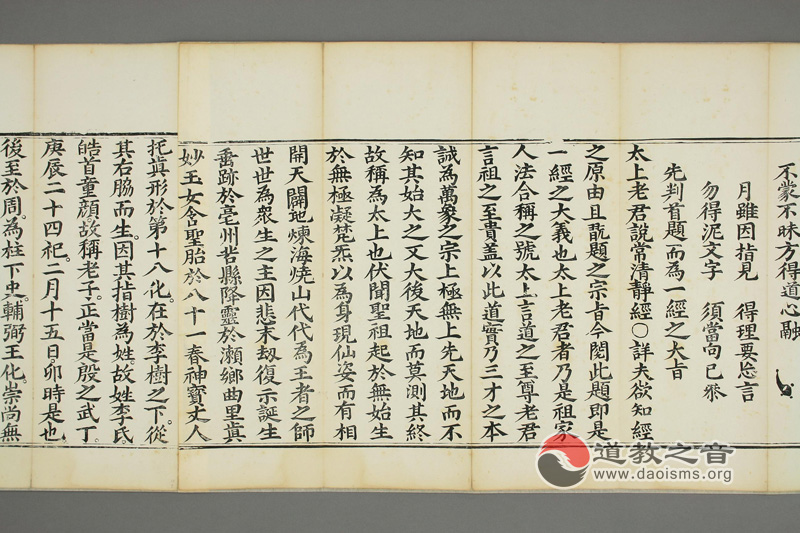 不蒙不昧方得道心融
月雖因指見　得理要忘言
勿得泥文字　須當向已叅
先判首題而為一經之大㫖
太上老君說常清靜經〇詳夫欲知經
之原由且翫題之宗㫖今閱此題即是
一經之大義也太上老君者乃是祖家
人法合稱之號太上言道之至尊老君
言祖之至貴盖以此道實乃三才之本
誠為萬象之宗上極無上先天地而不
知其始大之又大後天地而莫測其終
故稱為太上也伏聞聖祖起於無始生
於無極凝梵炁以為身現仙姿而有相
開天闢地煉海燒山代代為王者之師
世世為衆生之主因悲末劫復示誕生
垂跡於亳州苦縣降靈於瀬鄉曲里眞
妙玉女含聖胎於八十一春神寶丈人
托眞形於第十八化。在於李樹之下。從
其右脇而生。因其指樹為姓故姓李氏
皓首童顔故稱老子。正當是殷之武丁。
庚辰二十四祀。二月十五日卯時是也
後至於周。為柱下史。輔弼王化。崇尚無
道教之音
www.daoisms.org